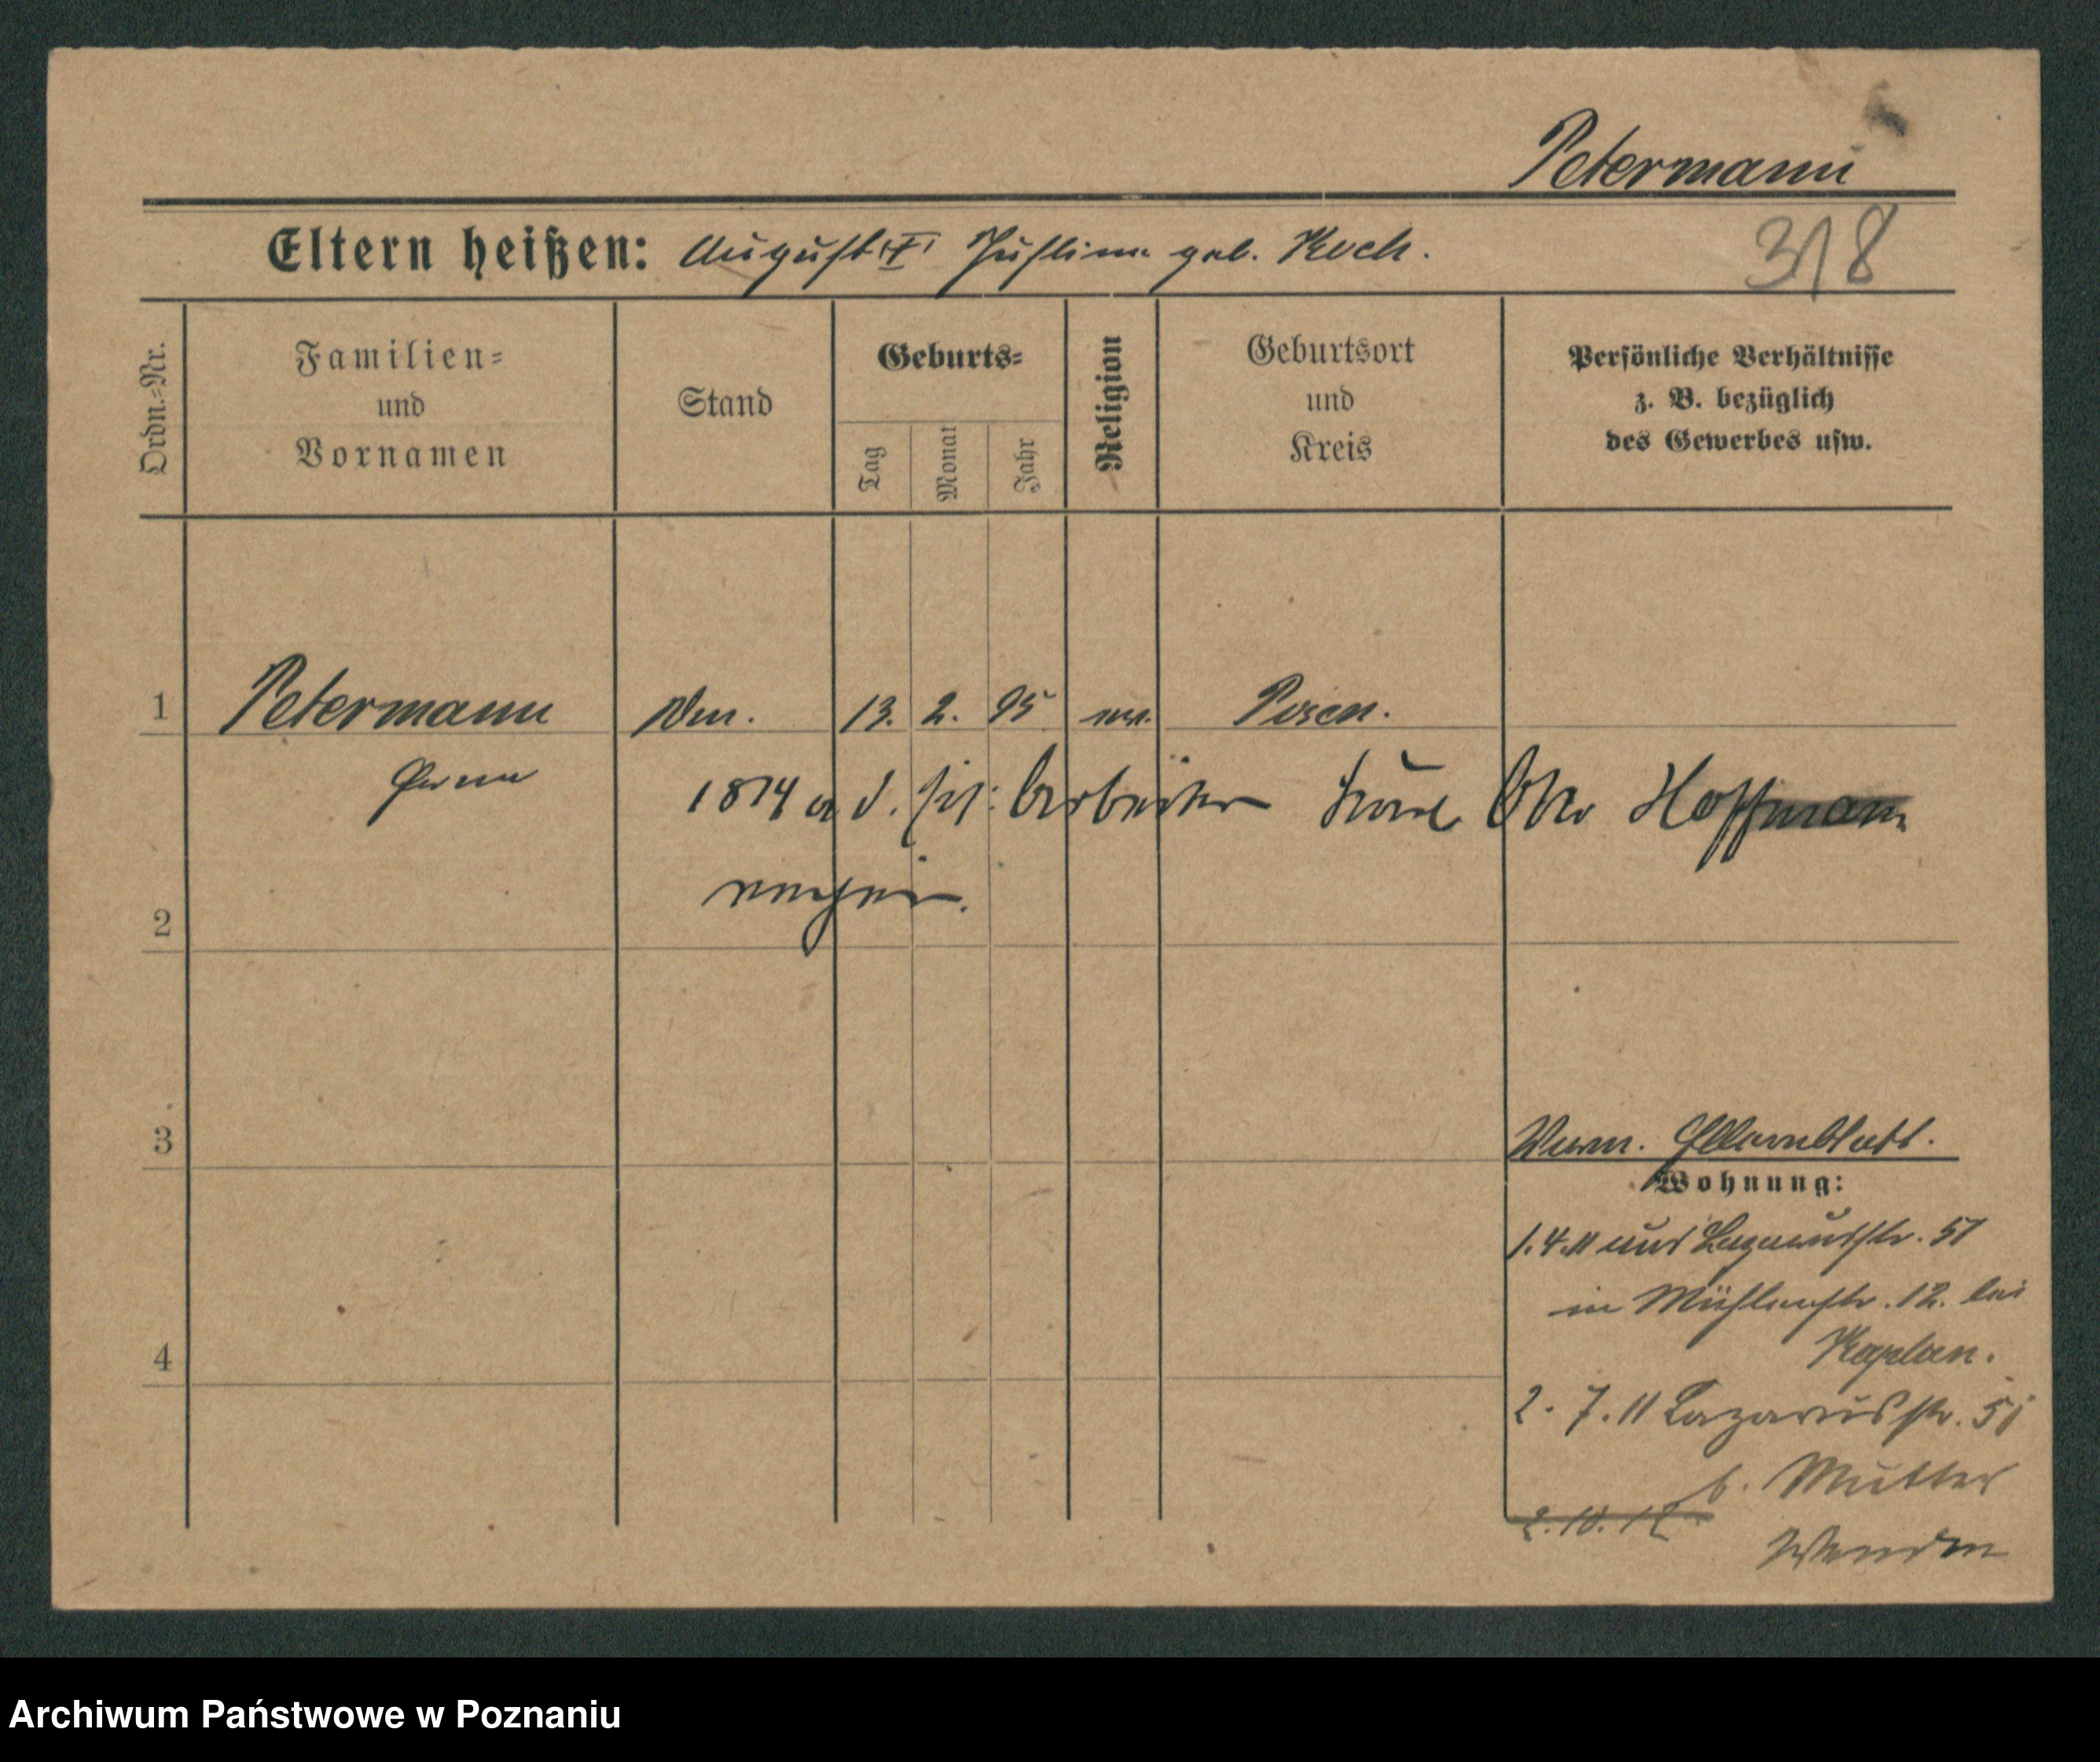 Petermann
Eltern heißen: August Justine geb. Koch.
318
Ordn.-Nr.
Familien-
und
Vornamen
Stand
Geburts-
Tag
Monat
Jahr
Religion
Geburtsort
und
Kreis
Persönliche Verhältnisse
z. B. bezüglich
des Gewerbes usw.
1 Petermann 13. 2. 95 Posen.
Arbeiter Otto Hoffmann
2
3
Elternblatt.
Wohnung:
1.4.11 aus Lazarusstr. 51
in Mühlenstr. 12. bei
Kaplan.
4
2. 7. 11 Lazarusstr. 51
b. Mutter
2. 10. 12
Archiwum Państwowe w Poznaniu